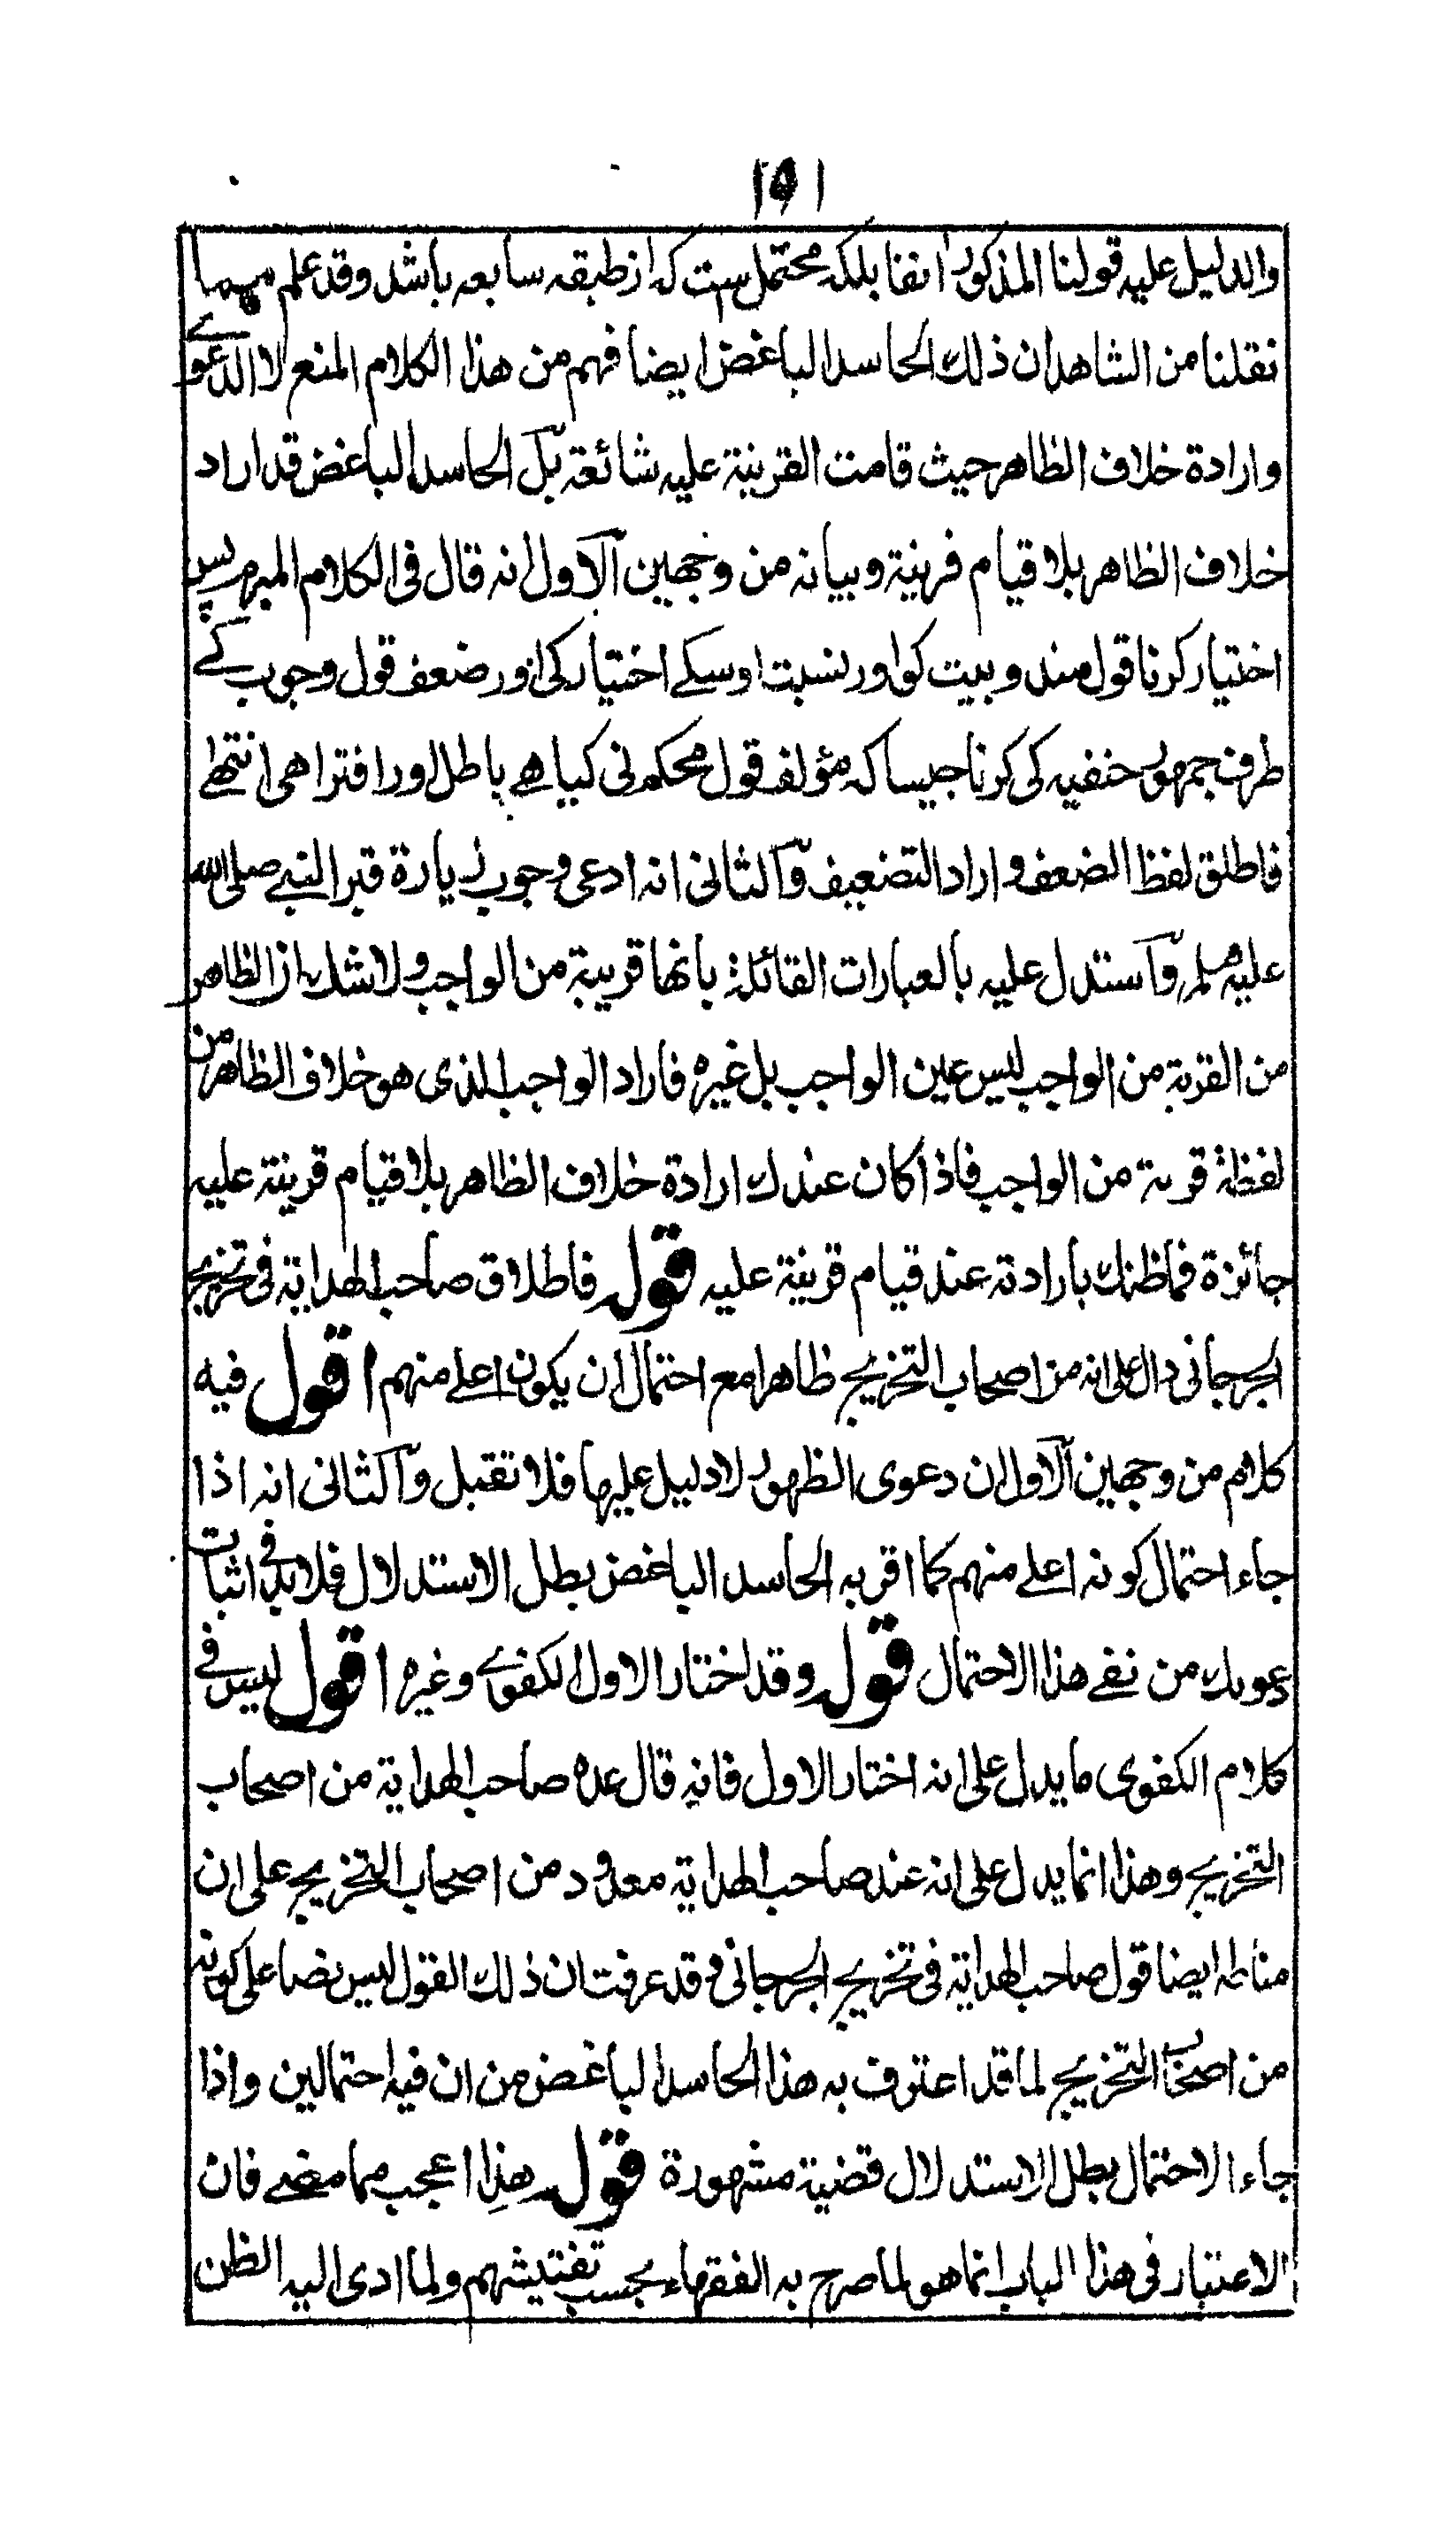 ۱۵۱
والدليل عليه قولنا المذكور انفا بلكه محتمل ست كه از طبقه سابعه باشد وقد علم مما
نقلنا من الشاهد ان ذلك الحاسد الباغض ايضا فهم من هذا الكلام المنع لا الدعوے
وارادة خلاف الظاهر حيث قامت القرينة عليه شائعة بل الحاسد الباغض قد اراد
خلاف الظاهر بلا قيام قرينة وبيانه من وجهين الاول انه قال فى الكلام المبرم پس
اختیار کرنا قول مندوبیت کو اور نسبت اوسکے اختیار کی اور ضعف قول وجوب کے
طرف جمہور حنفیہ کی کرنا جیسا کہ مؤلف قول محکم نی کیا ہے باطل اور افترا هی انتہے
فاطلق لفظ الضعف واراد التضعيف والثانى انه ادعى وجوب زيارة قبر النبے صلى الله
عليه وسلم واستدل عليه بالعبارات القائلة بانها قريبة من الواجب ولا شك ان الظاهر
من القربة من الواجب ليس عين الواجب بل غيره فاراد الواجب الذى هو خلاف الظاهر من
لفظة قربة من الواجب فاذا كان عندك ارادة خلاف الظاهر بلا قيام قرينة عليه
جائزة فما ظنك بارادته عند قيام قرينة عليه قوله فاطلاق صاحب الهداية فى تخريج
الجرجانى دال على انه من اصحاب التخريج ظاهرا مع احتمال ان يكون اعلے منهم اقول فيه
كلام من وجهين الاول ان دعوى الظهور لا دليل عليها فلا تقبل والثانى انه اذا
جاء احتمال كونه اعلے منهم كما اقر به الحاسد الباغض بطل الاستدلال فلا بد فى اثبات
دعويك من نفے هذا الاحتمال قوله وقد اختار الاول الكفوے وغيره اقول ليس فے
كلام الكفوى ما يدل على انه اختار الاول فانه قال عده صاحب الهداية من اصحاب
التخريج وهذا انما يدل على انه عند صاحب الهداية معدود من اصحاب التخريج على ان
مناطه ايضا قول صاحب الهداية فى تخريج الجرجانى وقد عرفت ان ذلك القول ليس نصا على كونه
من اصحاب التخريج لما قد اعترف به هذا الحاسد الباغض من ان فيه احتمالين واذا
جاء الاحتمال بطل الاستدلال قضية مشهورة قوله هذا اعجب مما مضے فان
الاعتبار فى هذا الباب انما هو لما صرح به الفقهاء بحسب تفتيشهم ولما ادى اليه الظن